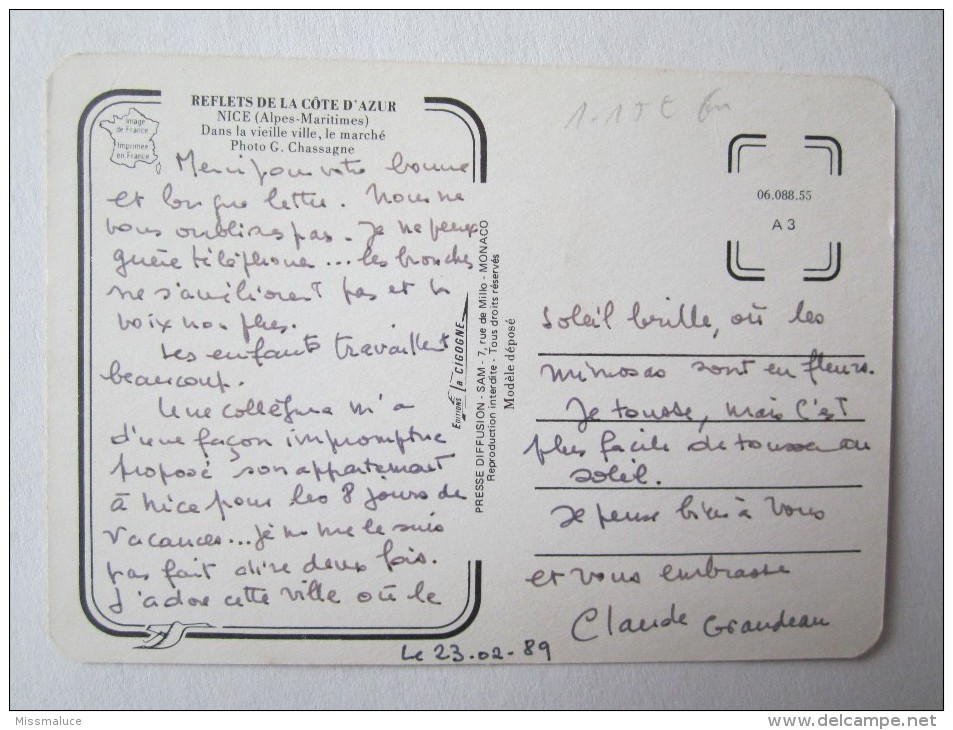 REFLETS DE LA CÔTE D'AZUR
NICE (Alpes-Maritimes)
Dans la vieille ville, le marché
Photo G. Chassagne
Image
de France
Imprimée
en France
Merci pour votre bonne
et longue lettre. Nous ne
vous oublions pas. Je ne peux
guère téléphoner... les bronches
ne s'améliorent pas et la
voix non plus.
Les enfants travaillent
beaucoup.
Une collègue m'a
d'une façon impromptue
proposé son appartement
à Nice pour les 8 jours de
vacances... je ne me le suis
pas fait dire deux fois.
J'adore cette ville où le
Le 23.02.89
EDITIONS la CIGOGNE
PRESSE DIFFUSION - SAM - 7, rue de Millo - MONACO
Reproduction interdite - Tous droits réservés
Modèle déposé
1.15€
06.088.55
A 3
soleil brille, où les
mimosas sont en fleurs.
Je tousse, mais c'est
plus facile de tousser au
soleil.
Je pense bien à vous
et vous embrasse
Claude Grandeau
Missmaluce
www.delcampe.net